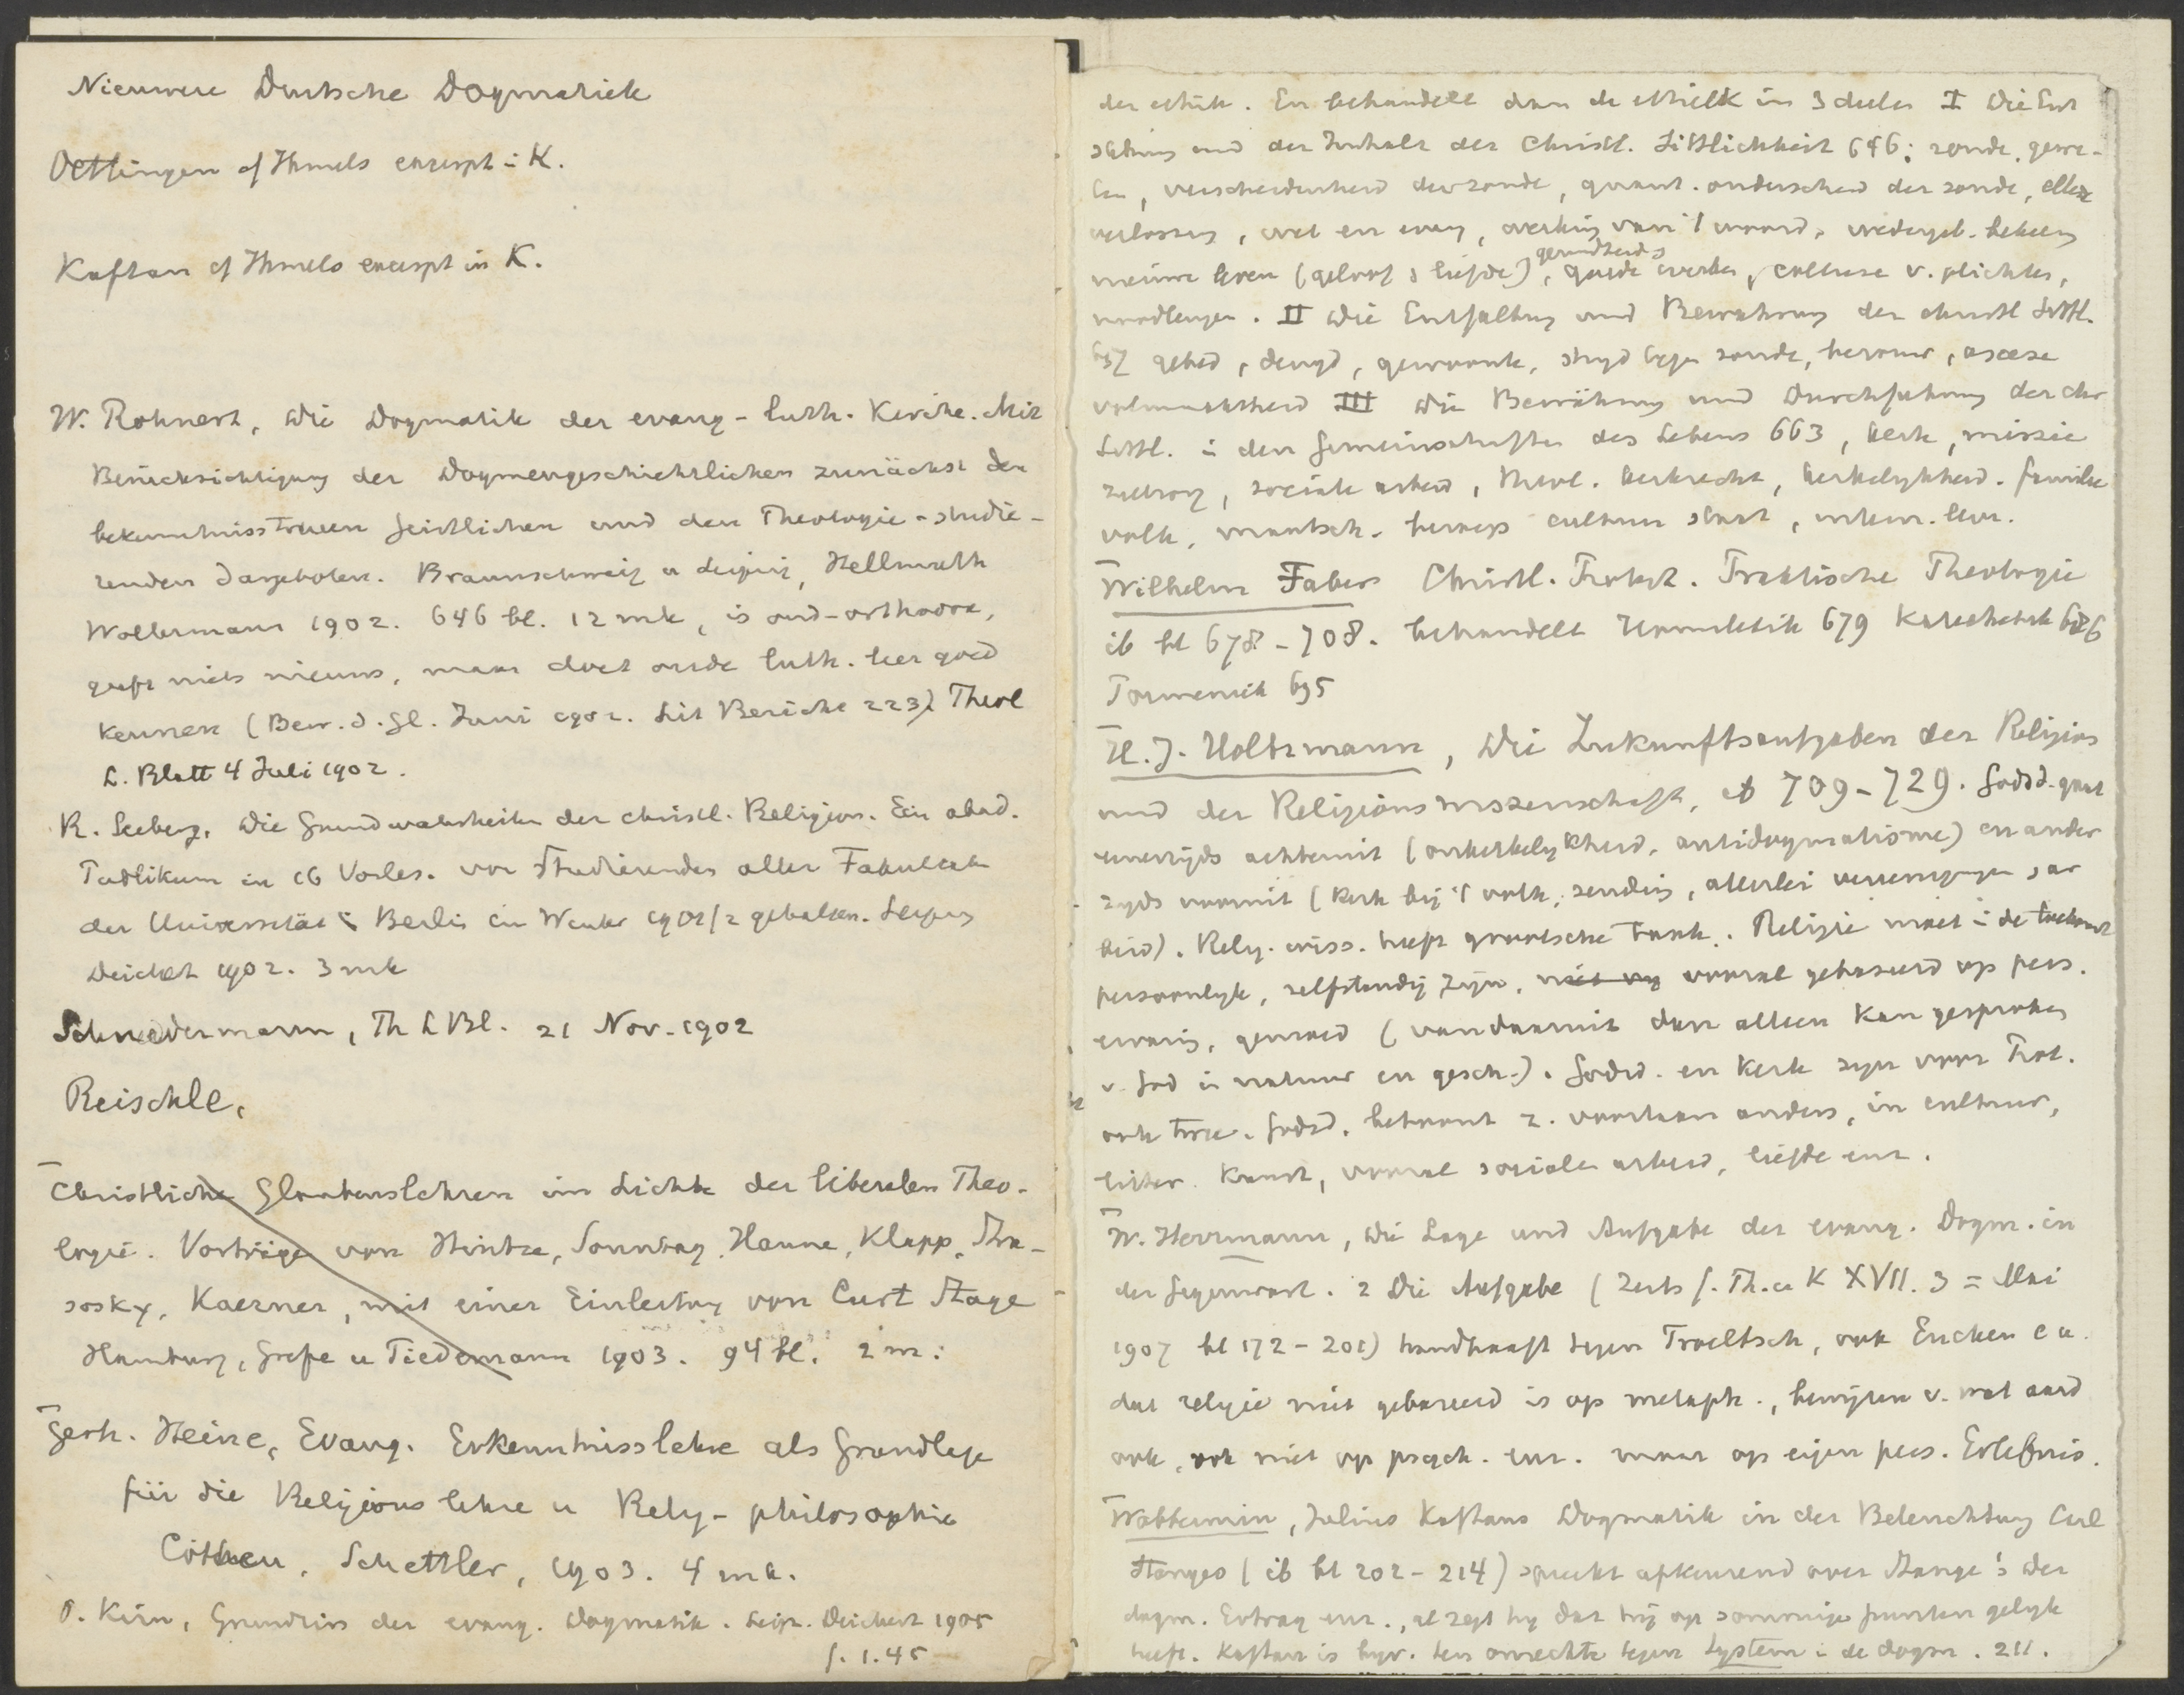 Nieuwere Duitsche Dogmatiek
Oettingen cf Ihmels excerpt i K.
Kaftan cf Ihmels excerpt in K.
W. Rohnert, Die Dogmatik der evang-luth. Kirche. Mit
Berücksichtigung der Dogmengeschichtlichen zunächst den
bekenntnisstreuen Geistlichen und den Theologie-studie-
renden dargeboten. Braunschweig u Leipzig, Hellmuth
Wollermann 1902. 646 bl. 12 mk, is oud-orthodox,
geeft niets nieuws, maar doet oude luth. leer goed
kennen (Bew. d. Gl. Juni 1902. Lit Bericht 223) Theol
L. Blatt 4 Juli 1902.
R. Seeberg, Die Grundwahrheiten der christl. Religion. Ein akad.
Publikum in 16 Vorles. vor Studierenden aller Fakultäten
der Universität i Berlin im Winter 1901/2 gehalten. Leipzig
Deichert 1902. 3 mk
Schnedermann, Th L Bl. 21 Nov. 1902
Reischle,
Christliche Glaubenslehren im Lichte der liberalen Theo-
logie. Vorträge von Hintze, Sonntag, Hanne, Klapp,
Kaerner, mit einer Einleitung von Curt Stage
Hamburg, Grefe u Tiedemann 1903. 94 bl. 2 m:
Gerh. Heine, Evang. Erkenntnisslehre als Grundlage
für die Religionslehre u Relig-philosophie
Cöthen, Schettler, 1903. 4 mk.
O. Kirn, Grundriss der evang. Dogmatik. Leipz. Deichert 1905
f. 1.45
der ethiek. En behandelt dan de ethiek in 3 deelen I Die Ent
stehung und der Inhalt der Christl. Sittlichkeit 646: zonde, gewe-
ten, verscheidenheid der zonde, quant. onderscheid der zonde,
verlossing, wet en evang, werking van 't woord, wedergeb. bekeering
nieuwe leven (geloof & liefde), gezindheid & goede werken, v. plichten,
II Die Entfaltung und Bewahrung der christl Sittl.
657 gebed, deugd, gewoonte, strijd tegen zonde, berouw, ascese
volmaaktheid III Die Bewährung und Durchführung der chr
Sittl. i den Gemeinschaften des Lebens 663, kerk, missie
sociale arbeid, theol. kerkrecht, kerkelykheid. familie
volk, maatsch. beroep cultuur staat,
Wilhelm Faber Christl. Protest. Praktische Theologie
ib bl 678-708. behandelt Homiletik 679 Katechetik 686
Poimenik 695
H. J. Holtzmann, Die Zukunftsaufgaben der Religion
und der Religionswissenschaft, ib 709-729. Godsd. gaat
eenerzijds achteruit (onkerkelykheid, antidogmatisme) en ander
zyds vooruit (kerk bij 't volk, zending, allerlei vereenigingen, ar
beid). Relig. wiss. heeft grootsche taak. Religie moet i de toekomst
persoonlyk, zelfstandig zijn, niet op vooral gebaseerd op pers.
ervaring, gemoed (vandaaruit dan alleen kan gesproken
v. God in natuur en gesch.). Godsd. en Kerk zyn voor Prot.
ook twee. Godsd. betoont z. voortaan anders, in cultuur,
litter. kunst, vooral sociale arbeid, liefde enz.
W. Herrmann, Die Lage und Aufgabe der evang. Dogm. in
der Gegenwart. 2 Die Aufgabe (Zeits f. Th. u K XVII. 3 = Mai
1907 bl 172-201) handhaaft tegen Troeltsch, ook Eucken e a.
dat religie niet gebaseerd is op metaph., bewijzen v. wat aard
ook, ook niet op psych. enz. maar op eigen pers. Erlebnis.
Wobbermin, Julius Kaftans Dogmatik in der Beleuchtung Carl
Stanges (ib bl 202-214) spreekt afkeurend over Stange's Der
dogm. Ertrag enz., al zegt hij dat hij op sommige punten gelyk
heeft. Kaftan is bijv. ten onrechte tegen System i de dogm. 211.